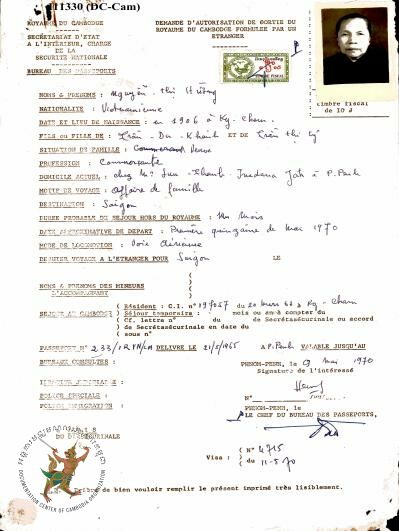 11330 (DC-Cam)
ROYAUME DU CAMBODGE
SECRÉTARIAT D'ETAT
A L'INTÉRIEUR, CHARGÉ
DE LA
SECURITE NATIONALE
BUREAU DES PASSEPORTS
DEMANDE D'AUTORISATION DE SORTIE DU
ROYAUME DU CAMBODGE FORMULEE PAR UN
ETRANGER
timbre fiscal
de 10 $
NOMS & PRENOMS : Nguyễn thị Hường
NATIONALITE : Vietnamienne
DATE ET LIEU DE NAISSANCE : en 1906 à Kg-Cham.
FILS ou FILLE DE : Trần Du Khánh ET DE Trần thị
SITUATION DE FAMILLE : Veuve
PROFESSION : Commerçante
DOMICILE ACTUEL : chez Mr à P. Penh
MOTIF DE VOYAGE : Affaire de famille
DESTINATION : Saigon
DUREE PROBABLE DU SEJOUR HORS DU ROYAUME : Un Mois
DATE APPROXIMATIVE DE DEPART : Première quinzaine de Mai 1970
MODE DE LOCOMOTION : Voie Aérienne
DERNIER VOYAGE A L'ETRANGER POUR Saigon LE
NOMS & PRENOMS DES MINEURS
L'ACCOMPAGNANT
SEJOUR AU CAMBODGE
Résident : C.I. N° 197057 du 20 Mars 62 à Kg-Cham
Séjour temporaire : mois ou en à compter du
Cf. lettre n° du de Secrétasécurinale ou accord
de Secrétasécurinale en date du
sous n°
PASSEPORT N° DELIVRE LE 21/5/1965 A P.Penh VALABLE JUSQU'AU
BUREAUX CONSULTES :
PHNOM-PENH, le 9 mai 1970
Signature de l'intéressé
POLICE SPECIALE :
POLICE IMMIGRATION :
N°
PHNOM-PENH, le
LE CHEF DU BUREAU DES PASSEPORTS,
Visa : N° 4715
du 11-5-70
DOCUMENTATION CENTER OF CAMBODIA ORGANIZATION
de bien vouloir remplir le présent imprimé très lisiblement.